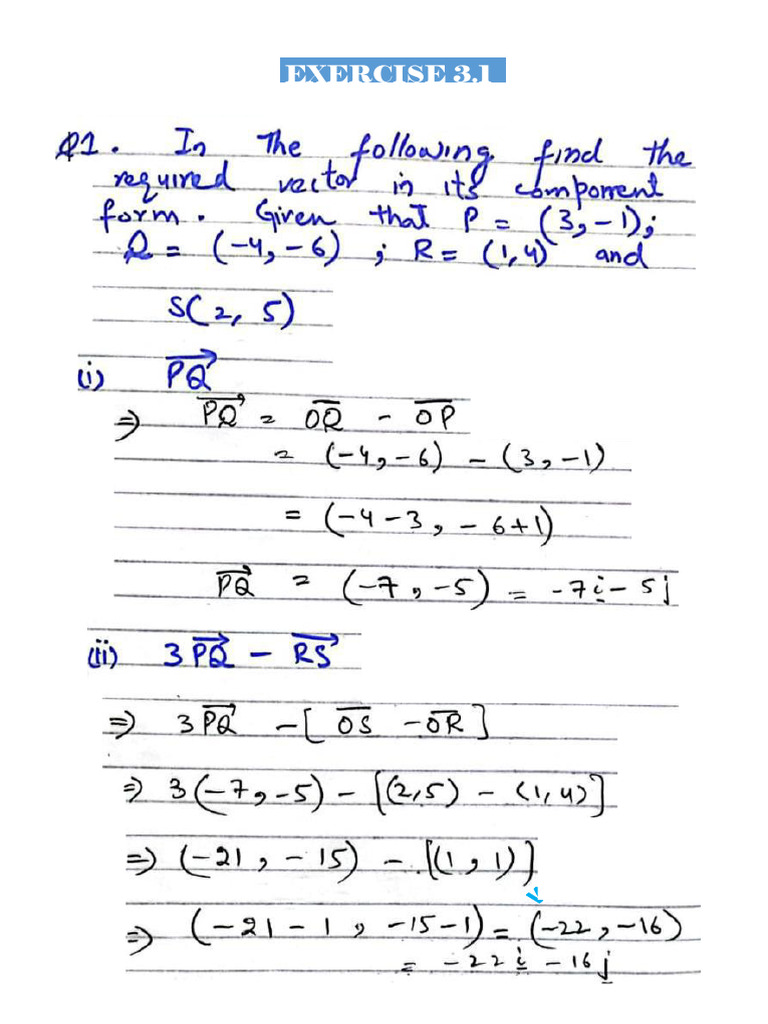 EXERCISE 3.1
Q1. In the following find the
required vector in its component
form. Given that P = (3, -1);
Q = (-4, -6) ; R = (1, 4) and
S(2, 5)
(i) PQ⃗
⇒ PQ⃗ = O̅Q̅ - O̅P̅
= (-4, -6) - (3, -1)
= (-4-3, -6+1)
PQ⃗ = (-7, -5) = -7i - 5j
(ii) 3PQ⃗ - RS⃗
⇒ 3PQ⃗ - [O̅S̅ - O̅R̅]
⇒ 3(-7, -5) - [(2,5) - (1,4)]
⇒ (-21, -15) - [(1, 1)]
⇒ (-21-1, -15-1) = (-22, -16)
= -22i - 16j